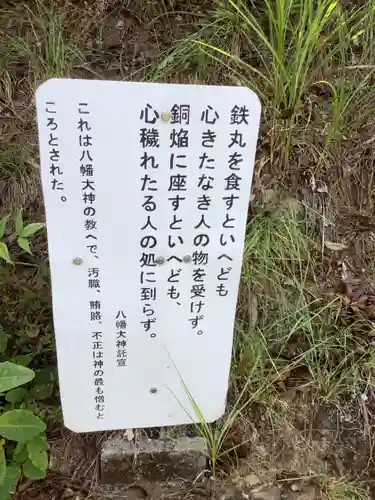 鉄丸を食すといへども
心きたなき人の物を受けず。
銅焔に座すといへども、
心穢れたる人の処に到らず。
八幡大神託宣
これは八幡大神の教へで、汚職、賄賂、不正は神の最も憎むと
ころとされた。